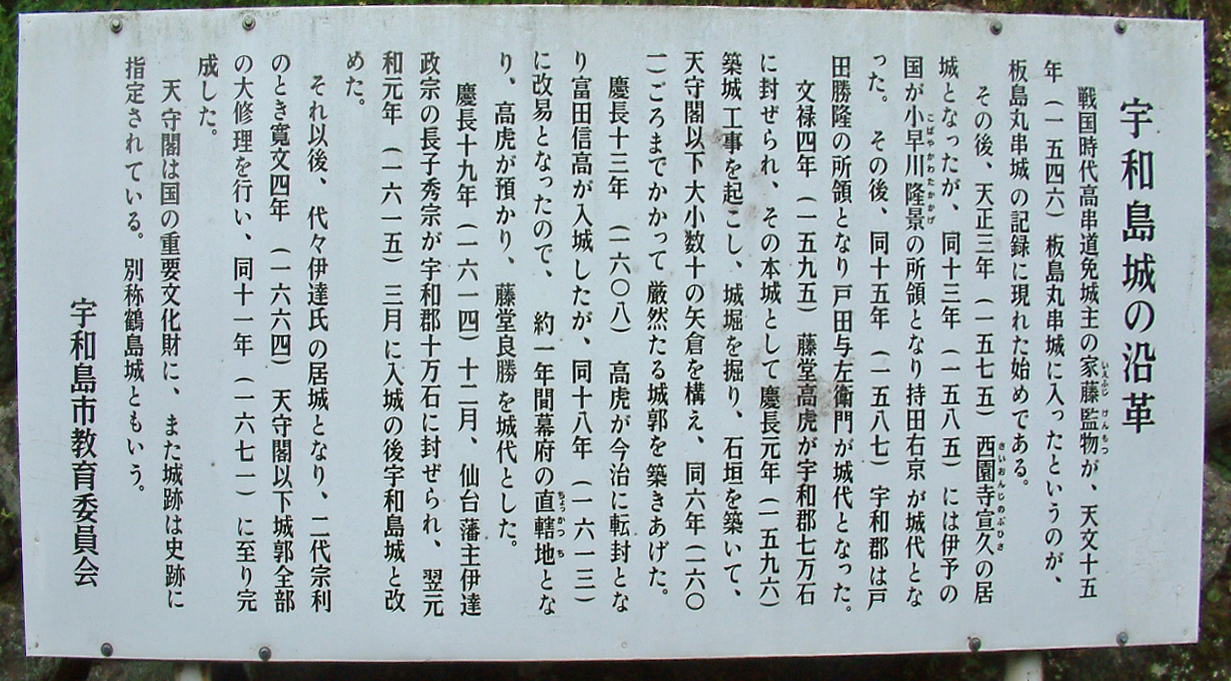 宇和島城の沿革
戦国時代高串道免城主の家藤監物が、天文十五
いえふじ けんもつ
年（一五四六）板島丸串城に入ったというのが、
板島丸串城の記録に現れた始めである。
その後、天正三年（一五七五）西園寺宣久の居
さいおんじのぶひさ
城となったが、同十三年（一五八五）には伊予の
国が小早川隆景の所領となり持田右京が城代とな
こばやかわたかかげ
った。その後、同十五年（一五八七）宇和郡は戸
田勝隆の所領となり戸田与左衛門が城代となった。
文禄四年（一五九五）藤堂高虎が宇和郡七万石
に封ぜられ、その本城として慶長元年（一五九六）
築城工事を起こし、城堀を掘り、石垣を築いて、
天守閣以下大小数十の矢倉を構え、同六年（一六〇
一）ごろまでかかって厳然たる城郭を築きあげた。
慶長十三年（一六〇八）高虎が今治に転封とな
り富田信高が入城したが、同十八年（一六一三）
に改易となったので、約一年間幕府の直轄地とな
ちょっかっち
り、高虎が預かり、藤堂良勝を城代とした。
慶長十九年（一六一四）十二月、仙台藩主伊達
政宗の長子秀宗が宇和郡十万石に封ぜられ、翌元
和元年（一六一五）三月に入城の後宇和島城と改
めた。
それ以後、代々伊達氏の居城となり、二代宗利
のとき寛文四年（一六六四）天守閣以下城郭全部
の大修理を行い、同十一年（一六七一）に至り完
成した。
天守閣は国の重要文化財に、また城跡は史跡に
指定されている。別称鶴島城ともいう。
宇和島市教育委員会